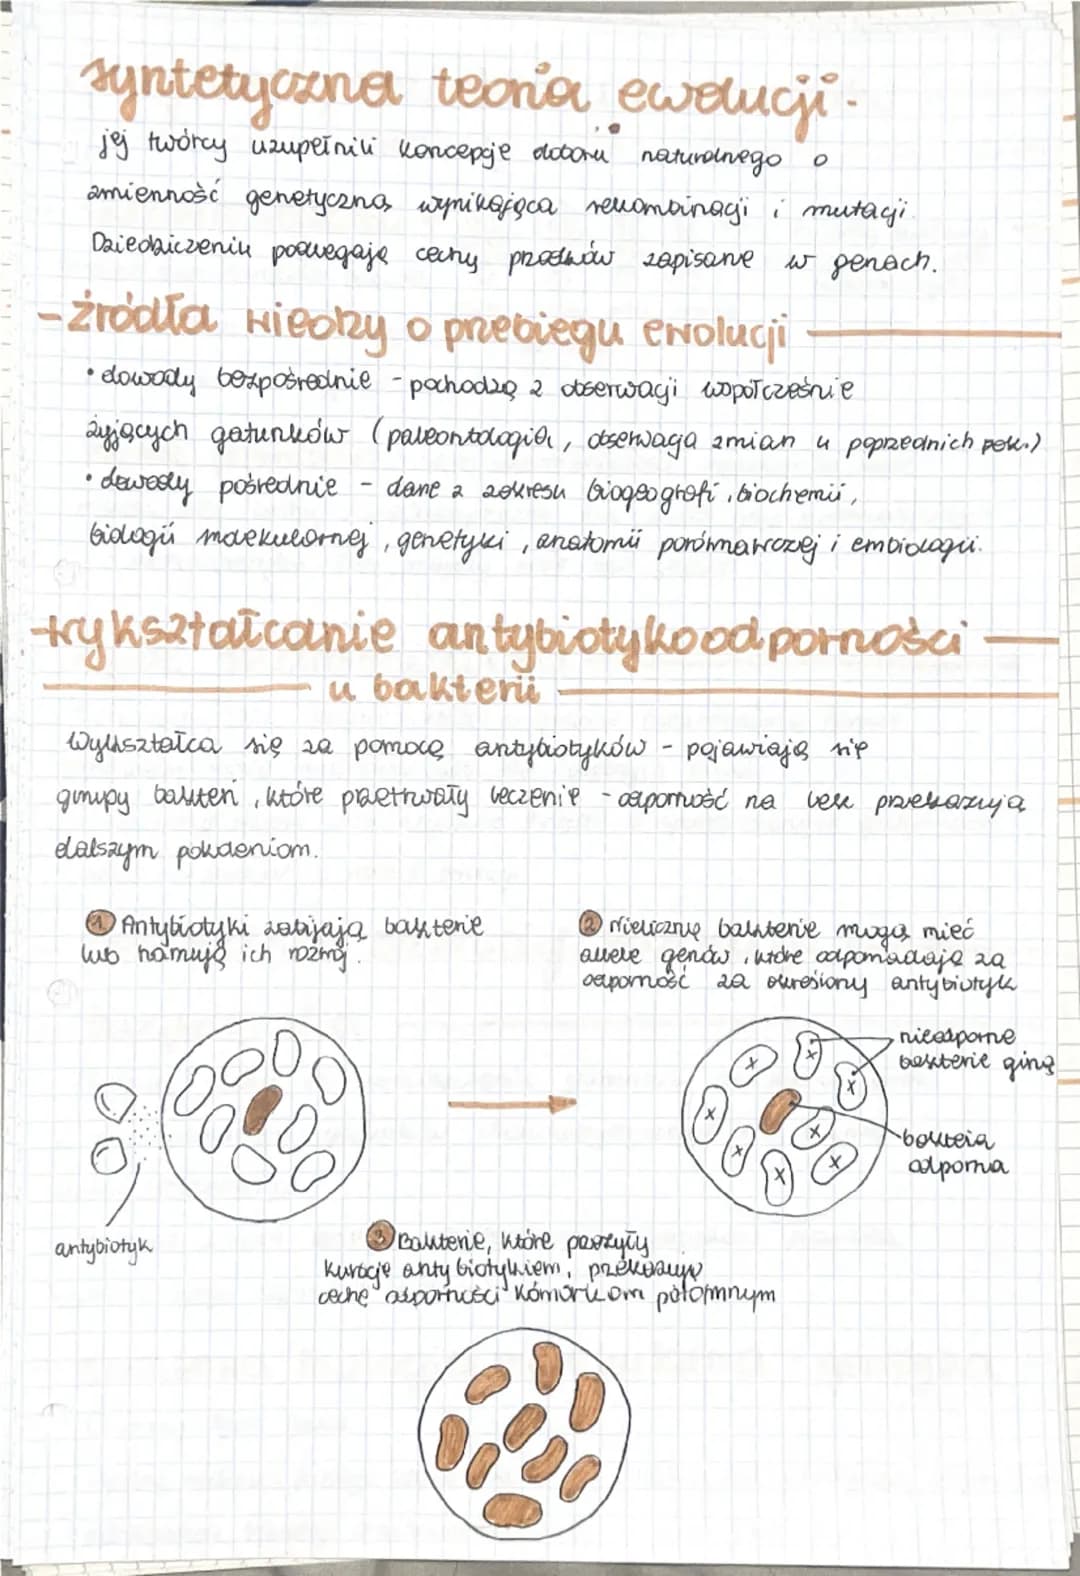 syntetyczna teoria ewolucji.
jej twórcy uzupełnili koncepcje doboru naturalnego o
zmienność genetyczną wynikającą rekombinacji i mutacji
Dziedziczeniu podlegają cechy przodków zapisane w genach.
-źródła wiedzy o przebiegu ewolucji
• dowody bezpośrednie - pochodzą z obserwacji współcześnie
żyjących gatunków (paleontologia, obserwacja zmian u poprzednich pok.)
• dowody pośrednie - dane z zakresu biogeografi, biochemii,
biologii molekularnej, genetyki, anatomii porównawczej i embiologii.
wykształcanie antybiotykoodporności
u bakterii
Wykształca się za pomocą antybiotyków - pojawiają się
grupy bakterii, które przetrwały leczenie - odporność na lek przekazują
dalszym pokoleniom.
1 Antybiotyki zabijają bakterie
lub hamują ich rozwój.
2 Nieliczne bakterie mogą mieć
allele genów, które odpowiadają za
odporność za określony antybiotyk
nieodporne
bakterie giną
bakteria
odporna
antybiotyk
3 Bakterie, które przeżyły
kurację antybiotykiem, przekazują
cechę odporności komórkom potomnym